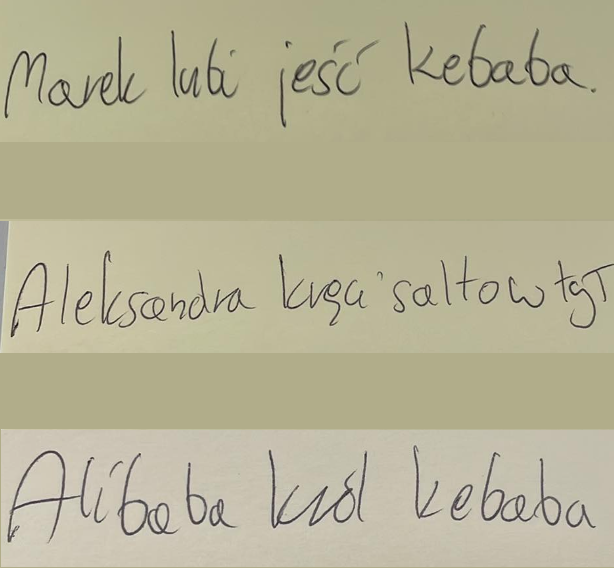 Marek lubi jeść kebaba.
Aleksandra kręci salto w tył
Alibaba król kebaba